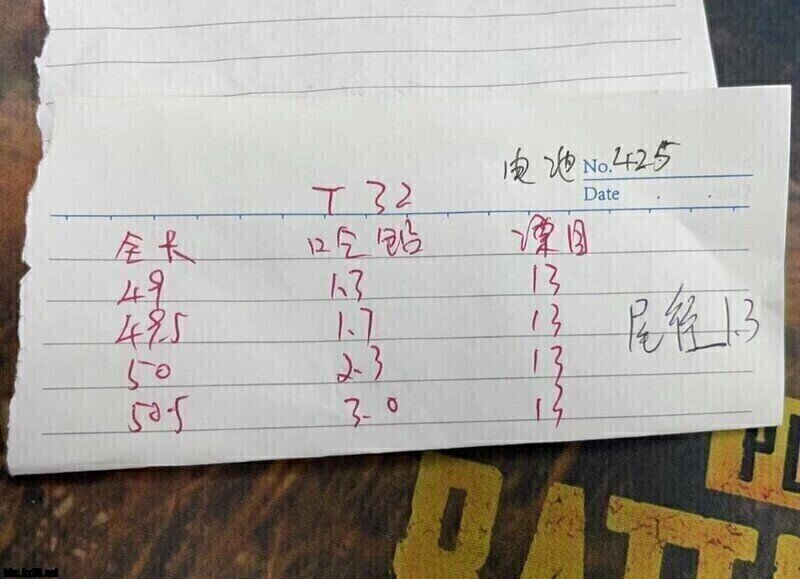 电池 No. 425
Date
T 32
全长 口空铅 漂目
49 1.3 13
49.5 1.7 13
50 2.3 13
50.5 3.0 13
尾径 1.3